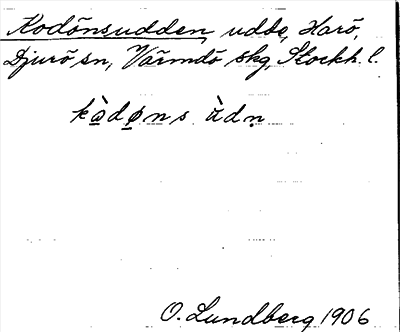 Kodönsudden, udde, Harö,
Djurö sn, Värmdö skg, Stockh. l.
kὰdøns ùdṇ
O. Lundberg 1906